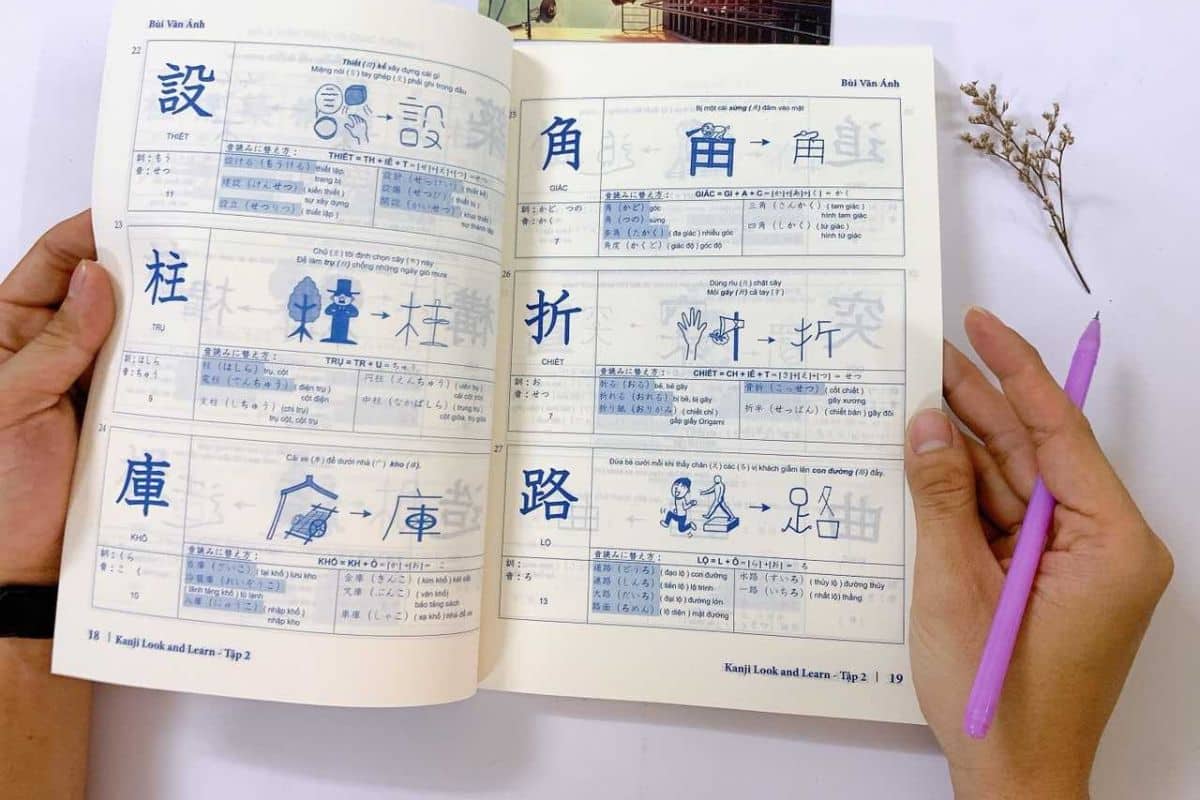 Bùi Văn Ánh
22
設
THIẾT
Thiết (設) kế xây dựng cái gì
Miệng nói (言) tay ghép (殳) phải ghi trong đầu
→ 設
訓：もう
音：せつ
11
音読みに替え方：
THIẾT = TH + IÊ + T =
設ける（もうける）thiết lập
trang bị
建設（けんせつ）( kiến thiết )
sự xây dựng
設立（せつりつ）( thiết lập )
設計（せっけい）( thiết kế )
設備（せつび）( thiết bị )
開設（かいせつ）( khai thiết )
sự thành lập
23
柱
TRỤ
Chủ (主) tôi định chọn cây (木) này
Để làm trụ (柱) chống những ngày gió mưa
→ 柱
訓：はしら
音：ちゅう
9
音読みに替え方：
TRỤ = TR + U = ちゅう
柱（はしら）trụ, cột
電柱（でんちゅう）( điện trụ )
cột điện
支柱（しちゅう）( chi trụ )
trụ cột, cột trụ
円柱（えんちゅう）( viên trụ )
cái cột tròn
中柱（なかばしら）( trung trụ )
cột giữa, trụ giữa
24
庫
KHỐ
Cái xe (車) để dưới nhà (广) kho (庫).
→ 庫
訓：くら
音：こ
10
音読みに替え方：
KHỐ = KH + Ô = [か] +[お] = こ
冷蔵庫（れいぞうこ）
( lãnh tàng khố ) tủ lạnh
入庫（にゅうこ）( nhập khố )
nhập kho
金庫（きんこ）( kim khố ) két sắt
文庫（ぶんこ）( văn khố )
bảo tàng sách
車庫（しゃこ）( xa khố ) nhà để xe
18 | Kanji Look and Learn - Tập 2
Bùi Văn Ánh
25
角
GIÁC
Bị một cái sừng (角) đâm vào mặt
→ 角
訓：かど、つの
音：かく
7
音読みに替え方：
GIÁC = GI + A + C = [か]+[あ]+[く] = かく
角（かど）góc
角（つの）sừng
多角（たかく）( đa giác ) nhiều góc
角度（かくど）( giác độ ) góc độ
三角（さんかく）( tam giác )
hình tam giác
四角（しかく）( tứ giác )
hình tứ giác
26
折
CHIẾT
Dùng rìu (斤) chặt cây
Mỏi gãy (折) cả tay (扌)
→ 折
訓：お
音：せつ
7
音読みに替え方：
CHIẾT = CH + IÊ + T = [さ]+[え]+[つ] = せつ
折る（おる）bẻ, bẻ gãy
折れる（おれる）bị bẻ, bị gãy
折り紙（おりがみ）( chiết chỉ )
gấp giấy Origami
骨折（こっせつ）( cốt chiết )
gãy xương
折半（せっぱん）( chiết bán ) gãy đôi
27
路
LỘ
Đứa bé cười mỗi khi thấy chân (足) các (各) vị khách giẫm lên con đường (路) đấy.
→ 路
訓：
音：ろ
13
音読みに替え方：
LỘ = L + Ô = [ら] +[お] = ろ
道路（どうろ）( đạo lộ ) con đường
進路（しんろ）( tiến lộ ) lộ trình
大路（だいろ）( đại lộ ) đường lớn
路面（ろめん）( lộ diện ) mặt đường
水路（すいろ）( thủy lộ ) đường thủy
一路（いちろ）( nhất lộ ) thẳng
Kanji Look and Learn - Tập 2 | 19